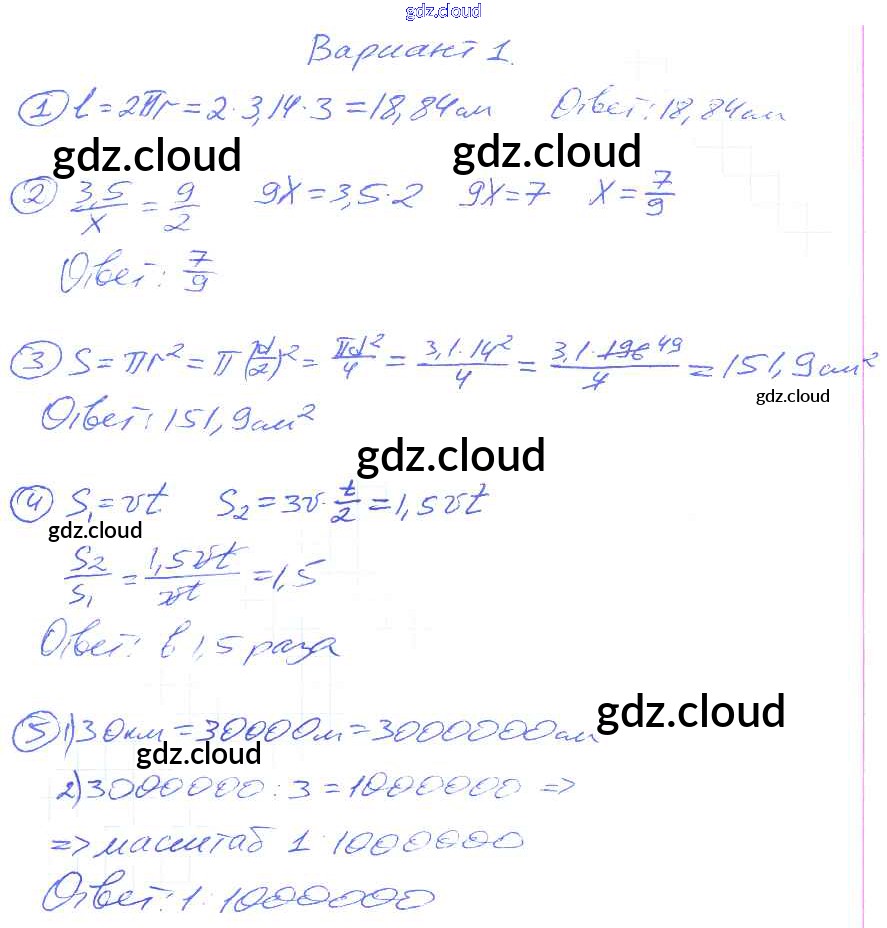 gdz.cloud
Вариант 1.
① l = 2πr = 2·3,14·3 = 18,84см Ответ: 18,84см
gdz.cloud gdz.cloud
② 3,5/x = 9/2 9x = 3,5·2 9x = 7 x = 7/9
Ответ: 7/9
③ S = πr² = π(d/2)² = πd²/4 = 3,1·14²/4 = 3,1·196 49/4 = 151,9см²
gdz.cloud
Ответ: 151,9см²
gdz.cloud
④ S₁ = vt S₂ = 3v·t/2 = 1,5vt
gdz.cloud
S₂/S₁ = 1,5vt/vt = 1,5
Ответ: в 1,5 раза
gdz.cloud
⑤ 1) 30км = 30000м = 3000000см
gdz.cloud
2) 3000000 : 3 = 1000000 =>
=> масштаб 1:1000000
Ответ: 1:1000000